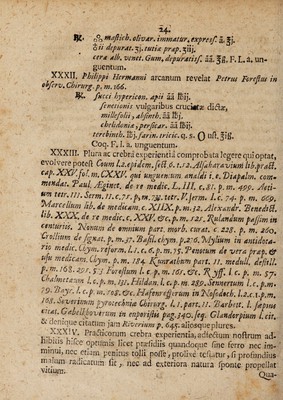 24.
℞. mastich. olivar. immatur. express. a. ℥j.
depurat. ʒj. tutiæ præp. ʒiij.
cera alb. venet. Gum. depuratiss. āā. ℥ß. F. L. a. un-
guentum.
XXXII. Philippi Hermanni arcanum revelat Petrus Forestus in
observ. Chirurg. p. m. 166.
℞. succi hypericon. apii āā ℔ij.
senetionis vulgaribus cruciatæ dictæ,
millefolii, absinth. āā ℔ij.
chelidonia, persicar. āā ℔ij.
terebinth. ℔j. farin. tritic. q. s. ust. ℥iß.
Coq. F. l. a. unguentum.
XXXIII. Plura ac crebra experientia comprobata legere qui optat,
evolvere potest Coum l. 2. epidem. sect. 6. t. 12. Alsaharavium lib. pract.
cap. XXV. fol. m. CXXV. qui unguentum analdi i. e. Diapalm. com-
mendat. Paul. Æginet. de re medic. L. III. c. 81. p. m. 499. Aeti-
um tetr. III. Serm. II. c. 71. p. m. 731. tetr. V. serm. I. c. 74. p. m. 669.
Marcellum lib. de medicam. c. XIIX. p. m. 12. Alexandr. Benedict.
lib. XXX. de re medic. c. XXV. & c. p. m. 125. Rulandum passim in
centuriis. Nonum de omnium part. morb. curat. c. 228. p. m. 260.
Crollium de signat. p. m. 37. Basil. chym. p. 276. Mylium in antidota-
rio medic. Chym. reform. l. 1. c. 6. p. m. 15. Penotum de vera præp. &
usu medicam. Chym. p. m. 184. Kunradum part. II. medull. destill.
p. m. 168. 291. 53 Forestum l. c. p. m. 161. &c. Ryff. l. c. p. m. 57.
Chalmeteum l. c. p. m. 131. Hildan. l. c. p. m. 289. Sennertum l. c. p. m.
79. Bayr. l. c. p. m. 708. 171. Hafenrefferum in Nosodoch. l. 2. c. 1. p. m.
168. Severinum pyrotechnia Chirurg. l. 1. part. II. Barbett. l. sæpius
citat. Gabelhoverum in enporistis pag. 140. seq. Glandorpium l. cit.
& denique citatum jam Riverium p. 645. aliosque plures.
XXXIV. Practicorum crebra experientia, adjectum nostrum ad-
hibitis hisce optimis licet præsidiis quandoque sine ferro nec im-
minui, nec etiam penitus tolli posse, prolixe testatur, si profundius
malum radicatum sit, nec ad exteriora natura sponte propellat
vitium.
Qua-